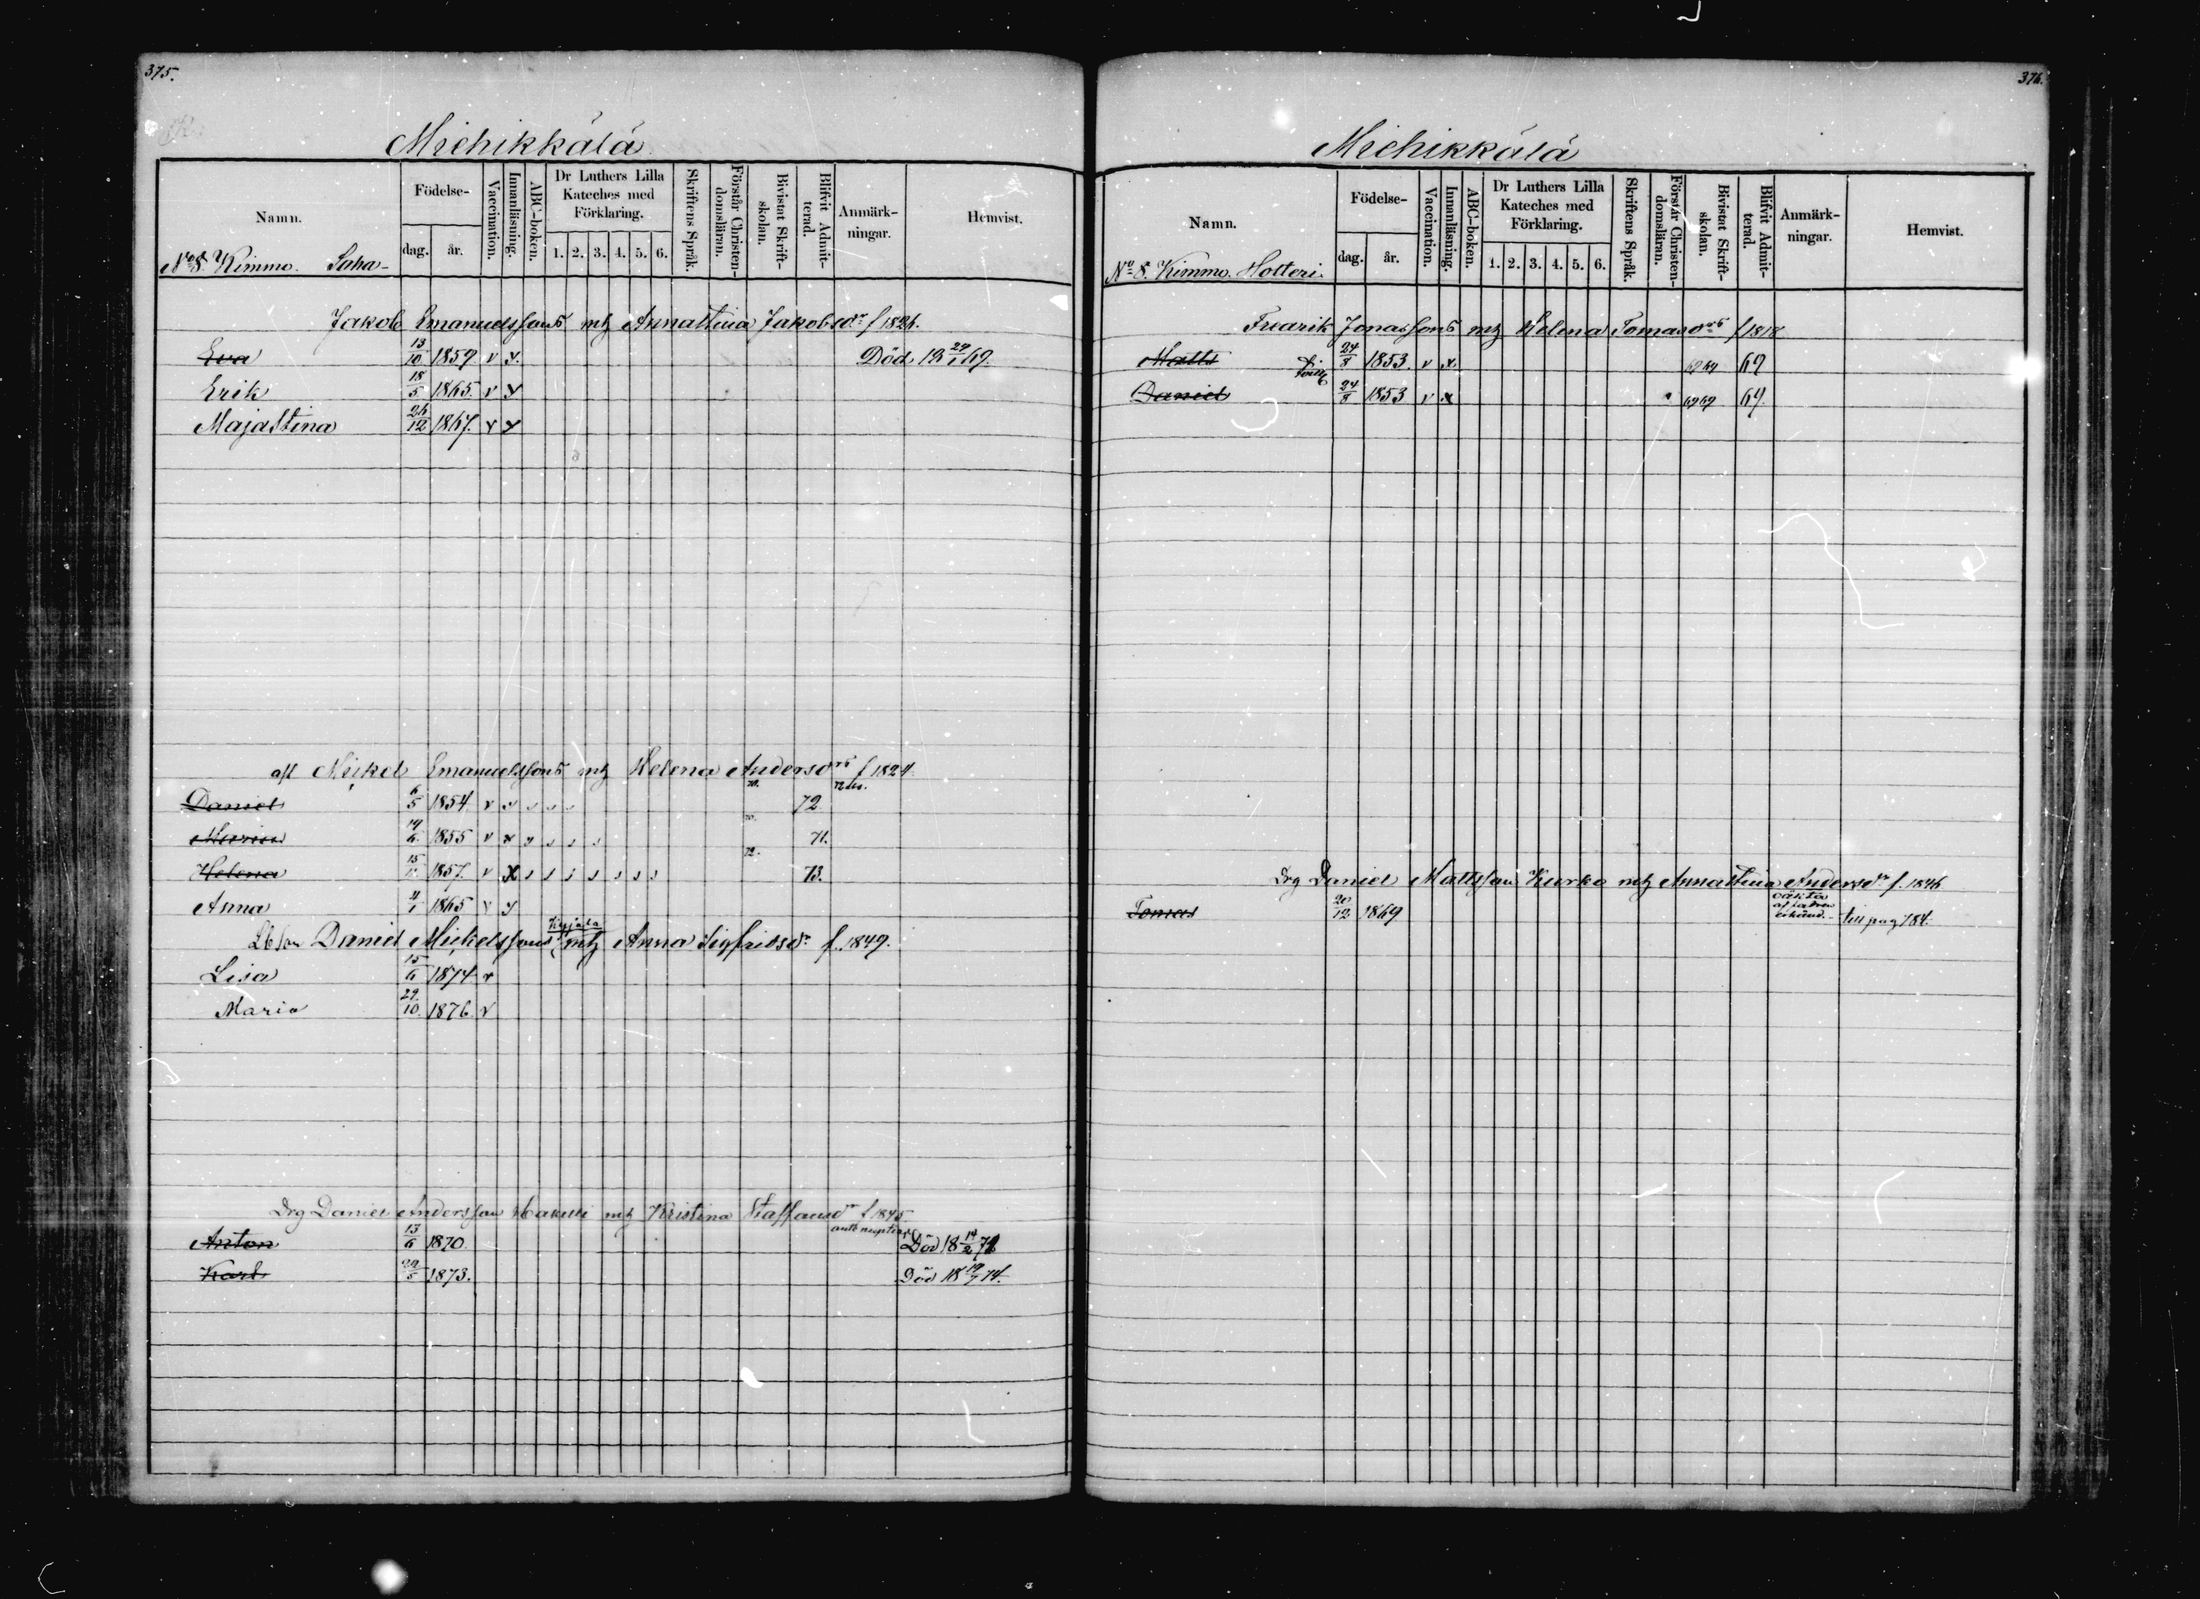 375.
Miehikkälä
Namn.
Födelse-
dag. år.
Vaccination.
Innanläsning.
ABC-boken.
Dr Luthers Lilla Kateches med Förklaring.
1. 2. 3. 4. 5. 6.
Skriftens Språk.
Förstår Christendomsläran.
Bivistat Skriftskolan.
Blifvit Admitterad.
Anmärkningar.
Hemvist.
No 8. Kimmo. Saha-
Jakob Emanuelssons mtz Annastina Jakobsdr f 1826.
Eva 13/10 1859 v x Död 18 29/1 69.
Erik 18/5 1865. v x
Majastina 26/12 1867. v x
afl Mickel Emanuelssons mtz Helena Andersdrs f 1824
Daniel 6/5 1854 v x 72
Maria 19/6 1855 v x 70. 71.
Helena 15 1857 v x 72. 73.
Anna 4/1 1865 v x
Lb son Daniel Mickelssons mtz Anna Sigfridsdr f. 1849.
Lisa 15/6 1874 v
Maria 29/10 1876 v
Drg Daniel Andersson mtz Kristina Staffansdr f 1845
Anton 13/6 1870. Död 18 14/2 72
Karl 29/5 1873. Död 18 19/7 74.
376.
Miehikkälä
Namn.
Födelse-
dag. år.
Vaccination.
Innanläsning.
ABC-boken.
Dr Luthers Lilla Kateches med Förklaring.
1. 2. 3. 4. 5. 6.
Skriftens Språk.
Förstår Christendomsläran.
Bivistat Skriftskolan.
Blifvit Admitterad.
Anmärkningar.
Hemvist.
No 8. Kimmo. Holteri.
Fredrik Jonassons mtz Helena Tomasdrs f 1818
Matts 24/8 1853. v x 69
Daniel 24/8 1853 v x 69.
Drg Daniel Mattsson Kurko mtz Annastina Andersdr f. 1846
Tomas 20/12 1869 oäkta af fadren erkänd. till pag 184.